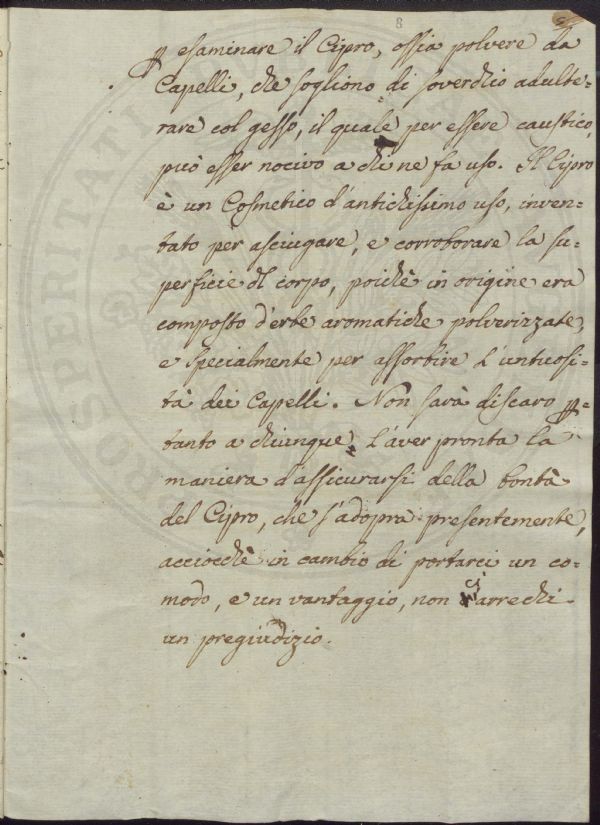 8
p esaminare il Cipro, ossia polvere da
Capelli, che sogliono di soverchio adulte=
rare col gesso, il quale per essere caustico,
può esser nocivo a chi ne fa uso. Il Cipro
è un Cosmetico d'antichissimo uso, inven-
tato per asciugare, e corroborare la su-
perficie dl corpo, poichè in origine era
composto d'erbe aromatiche polverizzate,
e specialmente per assorbire l'untuosi-
tà dei Capelli. Non sarà discaro p=
tanto a chiunque l'aver pronta la
maniera d'assicurarsi della bontà
del Cipro, che s'adopra presentemente,
acciocchè in cambio di portarci un co-
modo, e un vantaggio, non ci arrechi
un pregiudizio.